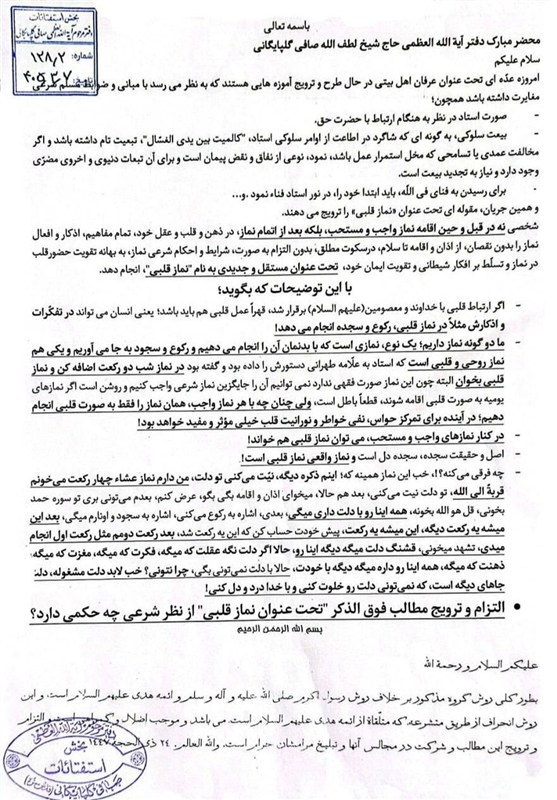 باسمه تعالی
بخش استفتائات
دفتر مرحوم آیة الله العظمی صافی گلپایگانی
شماره: ۱۲۸/۲
تاریخ: ۴۰۵،۳،۷
محضر مبارک دفتر آیة الله العظمی حاج شیخ لطف الله صافی گلپایگانی
سلام علیکم
امروزه عدّه ای تحت عنوان عرفان اهل بیتی در حال طرح و ترویج آموزه هایی هستند که به نظر می رسد با مبانی و ضوابط مسلم شرعی
مغایرت داشته باشد همچون؛
- صورت استاد در نظر به هنگام ارتباط با حضرت حق.
- بیعت سلوکی، به گونه ای که شاگرد در اطاعت از اوامر سلوکی استاد، "کالمیت بین یدی الغسّال"، تبعیت تام داشته باشد و اگر
مخالفت عمدی یا تسامحی که مخل استمرار عمل باشد، نمود، نوعی از نفاق و نقض پیمان است و برای آن تبعات دنیوی و اخروی مضرّی
وجود دارد و نیاز به تجدید بیعت است.
- برای رسیدن به فنای فی الله، باید ابتدا خود را، در نور استاد فناء نمود .و...
و همین جریان، مقوله ای تحت عنوان «نماز قلبی» را ترویج می دهند.
شخصی نه در قبل و حین اقامه نماز واجب و مستحب، بلکه بعد از اتمام نماز، در ذهن و قلب و عقل خود، تمام مفاهیم، اذکار و افعال
نماز را بدون نقصان، از اذان و اقامه تا سلام، درسکوت مطلق، بدون التزام به صورت، شرایط و احکام شرعی نماز، به بهانه تقویت حضورقلب
در نماز و تسلّط بر افکار شیطانی و تقویت ایمان خود، تحت عنوان مستقل و جدیدی به نام "نماز قلبی"، انجام دهد.
با این توضیحات که بگوید؛
- اگر ارتباط قلبی با خداوند و معصومین(علیهم السلام) برقرار شد، قهراً عمل قلبی هم باید باشد؛ یعنی انسان می تواند در تفکّرات
و اذکارش مثلاً در نماز قلبی، رکوع و سجده انجام می دهد!
- ما دو گونه نماز داریم؛ یک نوع، نمازی است که با بدنمان آن را انجام می دهیم و رکوع و سجود به جا می آوریم و یکی هم
نماز روحی و قلبی است که استاد به علّامه طهرانی دستورش را داده بود و گفته بود در نماز شب دو رکعت اضافه کن و نماز
قلبی بخوان البته چون این نماز صورت فقهی ندارد نمی توانیم آن را جایگزین نماز شرعی واجب کنیم و روشن است اگر نمازهای
یومیه به صورت قلبی اقامه شوند، قطعاً باطل است، ولی چنان چه با هر نماز واجب، همان نماز را فقط به صورت قلبی انجام
دهیم؛ در آینده برای تمرکز حواس، نفی خواطر و نورانیت قلب خیلی مؤثر و مفید خواهد بود!
- در کنار نمازهای واجب و مستحب، می توان نماز قلبی هم خواند!
- اصل و حقیقت سجده، سجده دل است و نماز واقعی نماز قلبی است!
- چه فرقی می‌کنه؟!، خب این نماز همینه که؛ اینم ذکره دیگه، نیّت می‌کنی تو دلت، من دارم نماز عشاء چهار رکعت می‌خونم
قربةً الی الله، تو دلت نیت می‌کنی، بعد هم حالا، میخوای اذان و اقامه بگی بگو، عرض کنم، بعدم می‌تونی بری تو سوره حمد
بخونی، قل هو الله بخونه، همه اینا رو با دلت داری میگی، بعدی، اشاره به رکوع می‌کنی، اشاره به سجود و اونارم میگی، بعد این
میشه یه رکعت دیگه، این میشه یه رکعت، پیش خودت حساب کن که این یه رکعت شد، بعد رکعت دومم مثل رکعت اول انجام
میدی، تشهد میخونی، قشنگ دلت میگه دیگه اینا رو، حالا اگر دلت نگه عقلت که میگه، فکرت که میگه، مغزت که میگه،
ذهنت که میگه، همه اینا رو داره میگه دیگه با خودت، حالا با دلت نمی‌تونی بگی، چرا نتونی؟ خب لابد دلت مشغوله، دلت
جاهای دیگه است، که نمی‌تونی دلت رو خلوت کنی و با خدا درد و دل کنی!
• التزام و ترویج مطالب فوق الذکر "تحت عنوان نماز قلبی" از نظر شرعی چه حکمی دارد؟
بسم الله الرحمن الرحیم
علیکم السلام و رحمة الله
بطور کلی روش گروه مذکور بر خلاف روش رسول اکرم صلی الله علیه و آله و سلم و ائمه هدی علیهم السلام است. و این
روش انحراف از طریق متشرعه که متلقّاة از ائمه هدی علیهم السلام است، می باشد و موجب اضلال و گمراهی است و التزام
و ترویج این مطالب و شرکت در مجالس آنها و تبلیغ مرامشان حرام است. والله العالم. ۲۴ ذی الحجه ۱۴۴۷
بخش
استفتائات